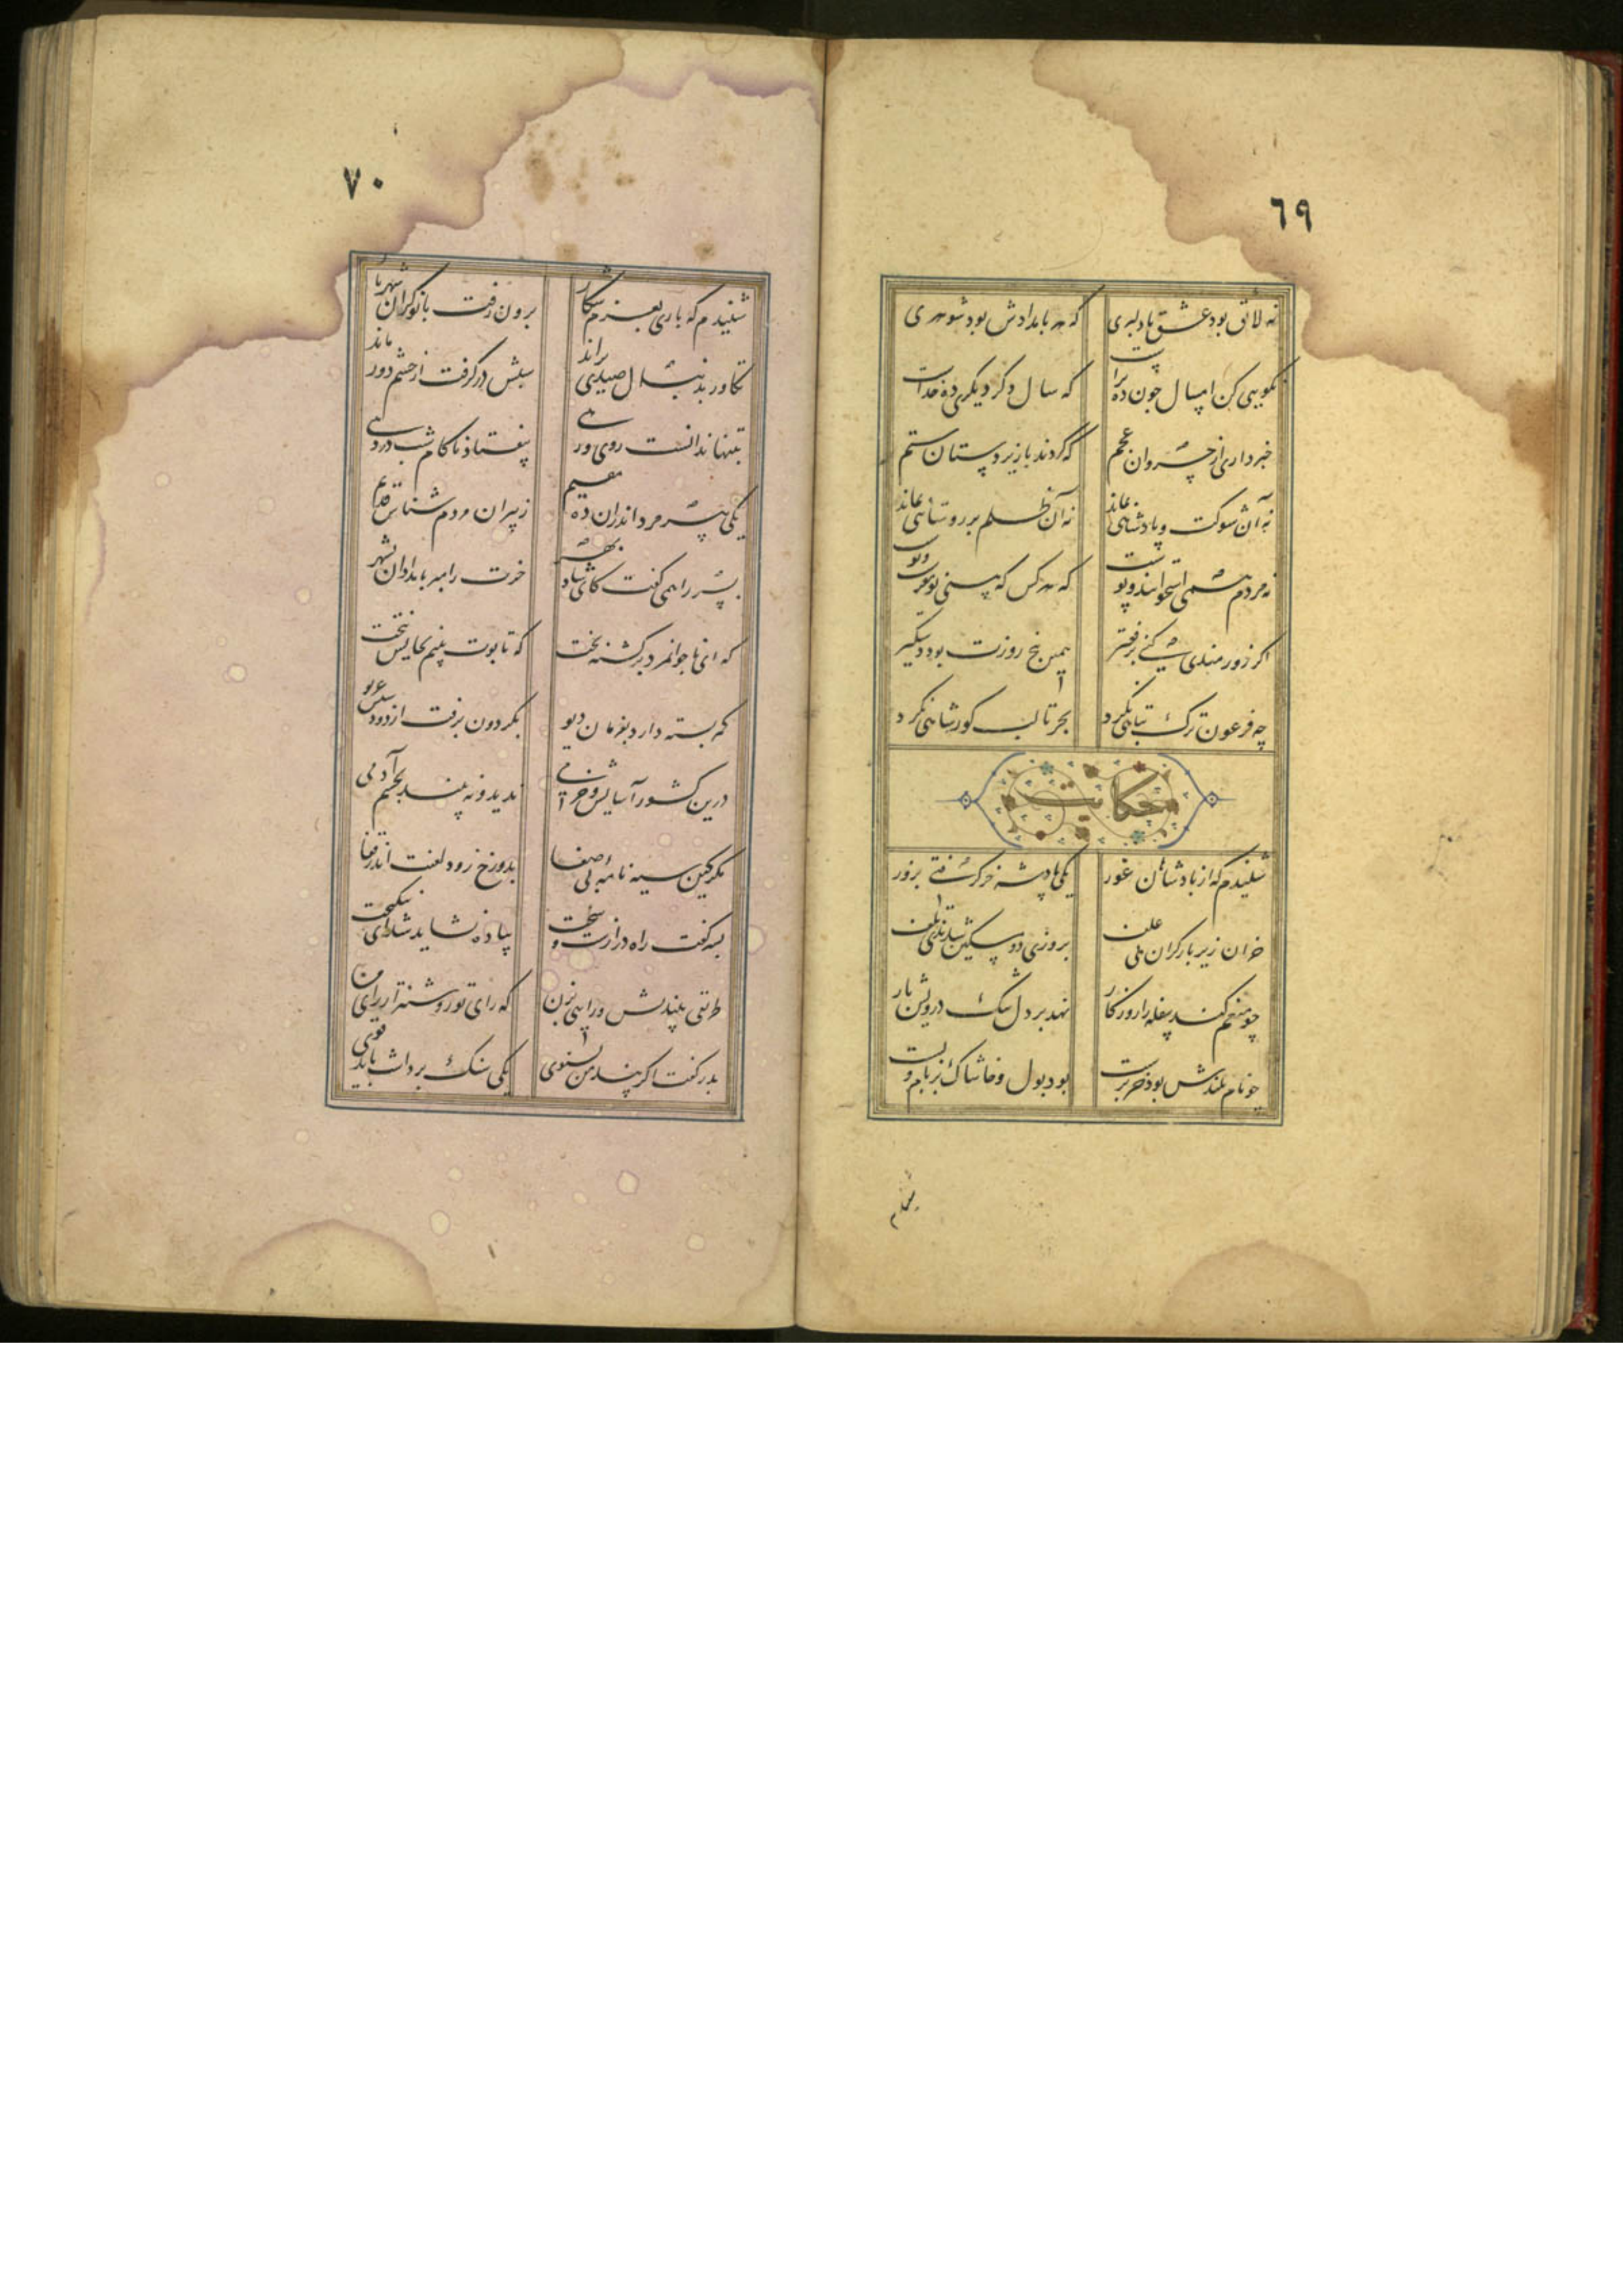 ٦٩
نه لائق بود عشق با دلبری که هر بامدادش بود شوهری
نکویی کن امسال چون ده تراست که سال دگر دیگری ده خداست
خبر داری از خسروان عجم که کردند بر زیردستان ستم
نه آن شوکت و پادشاهی بماند نه آن ظلم بر روستائی بماند
نه مردم همی استخوانند و پوست که هر کس که بینی تو مغز دروست
اگر زورمندی کنی بر فقیر همین پنج روزت بود دستگیر
چه فرعون ترک تباهی نکرد بجز تا لب گور شاهی نکرد
حکایت
شنیدم که از پادشاهان غور یکی پادشه خر گرفتی بزور
خران زیر بار گران بی علف بروزی دو مسکین شدندی تلف
چو منعم کند سفله را روزگار نهد بر دل تنگ درویش بار
چو بام بلندش بود خودپرست کند بول و خاشاک بر بام پست
٧٠
شنیدم که باری بعزم شکار برون رفت با نوکران شهریار
تکاور بدنبال صیدی براند شبش درگرفت از حشم دور ماند
بتنها ندانست روی و رهی بیفتاد ناکام شب در دهی
یکی پیرمرد اندران ده مقیم ز پیران مردم شناس قدیم
پسر را همی گفت کای شاد بهر خرت را مبر بامدادان بشهر
که ای ناجوانمرد برگشته بخت که تابوت بینم بجایش نه تخت
که بسته دارد بفرمان دیو بگردون برفت از دود دلش غریو
درین کشور آسایش و خرمی ندید و نه بیند بچشم آدمی
مگر کین سیه نامه بی صفا بدوزخ رود لعنت اندر قفا
پسر گفت راه درازست و سخت پیاده نشاید شد ای نیکبخت
طریقی بیندیش و رایی بزن که رای تو روشنتر از رای من
پدر گفت اگر پند من بشنوی یکی سنگ برداشت باید قوی